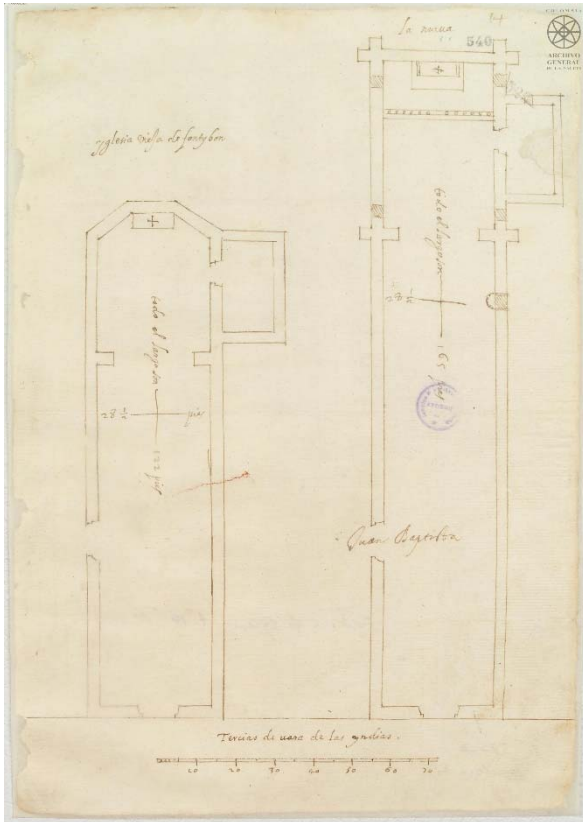 la nueva
540
COLOMBIA
ARCHIVO
GENERAL
DE LA NACION
yglesia vieja de fontybon
todo el largo son
28 ½
pies
122 pies
todo el largo son
28 ½
165 pies
Juan Baptista
Tercias de vara de las yndias.
10 20 30 40 50 60 70